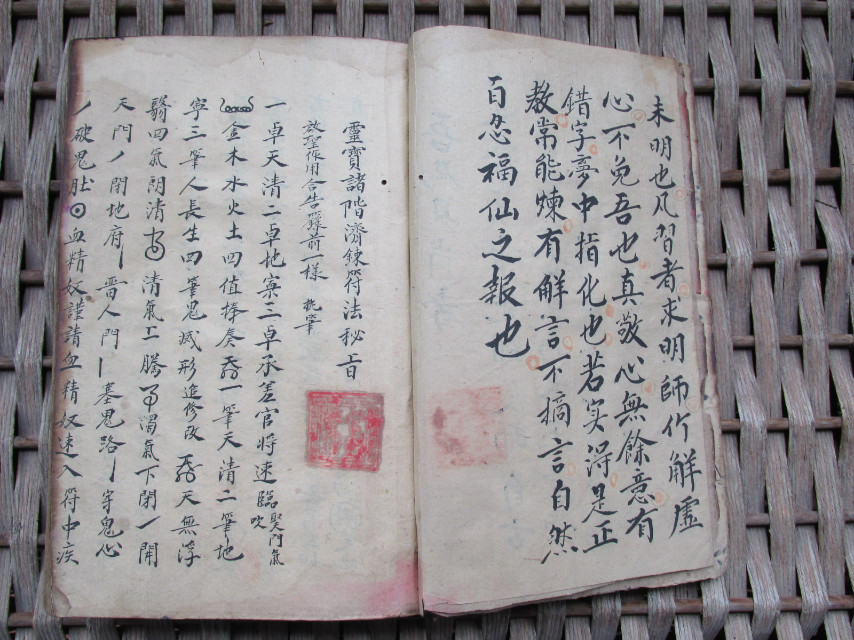 未明也凡習者求明師竹解虛
心不免吾也真敬心無餘意有
錯字夢中指化也若实淂是正
教常能煉有解言不搞言自然
百忽福仙之報也
靈寶諸階濟鍊符法秘旨
放聖作用合告籙前一樣 執筆
一卓天清二卓地寧三卓承差官將速臨 吹
金木水火土四值捧奏 一筆天清二筆地
寧三筆人長生四筆鬼滅形追修改 天無浮
翳四氣朗清 清氣上騰 濁氣下閉 開
天門 閉地府 晋人門 塞鬼路 穿鬼心
破鬼肚 血精奴謹請血精奴速入符中疾